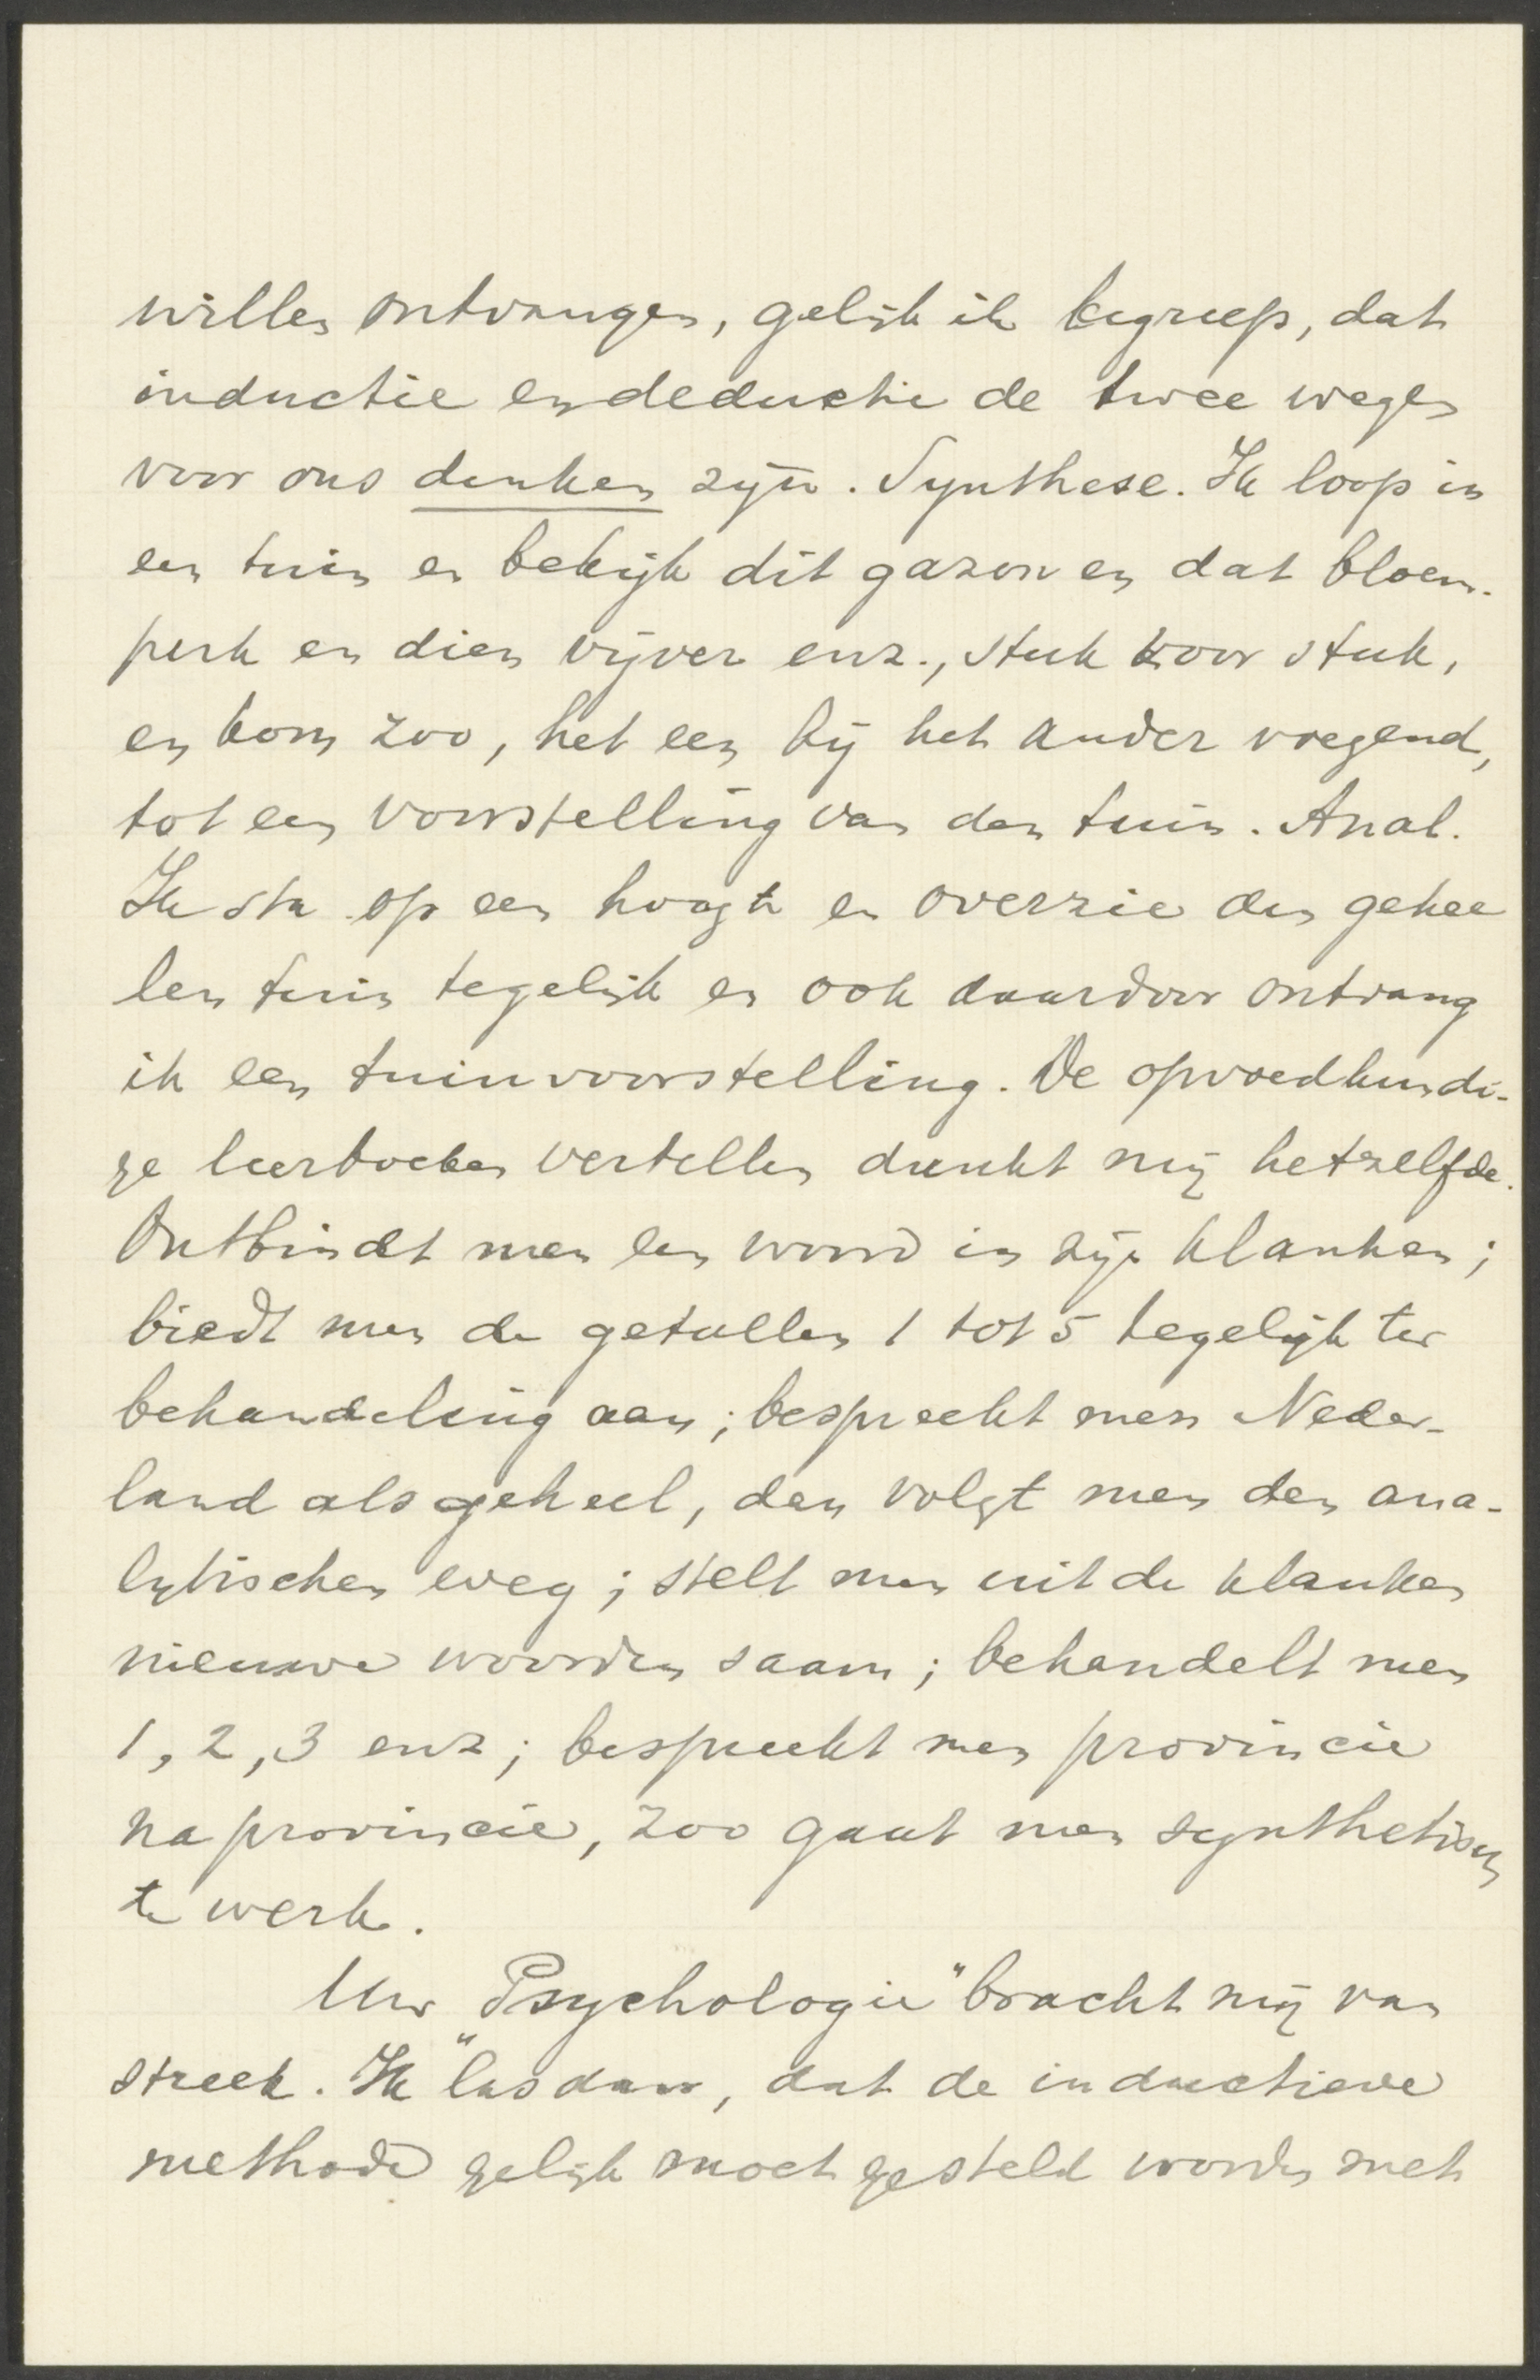 willen ontvangen, gelijk ik begreep, dat
inductie en deductie de twee wegen
voor ons denken zijn. Synthese. Ik loop in
een tuin en bekijk dit gazon en dat bloem-
perk en dien vijver enz., stuk voor stuk,
en kom zoo, het een bij het ander voegend,
tot een voorstelling van den tuin. Anal.
Ik sta op een hoogte en overzie den gehee
len tuin tegelijk en ook daardoor ontvang
ik een tuinvoorstelling. De opvoedkundi-
ge leerboeken vertellen dunkt mij hetzelfde.
Ontbindt men een woord in zijn klanken;
biedt men de getallen 1 tot 5 tegelijk ter
behandeling aan; bespreekt men Neder-
land als geheel, dan volgt men den ana-
lytischen weg; stelt men uit de klanken
nieuwe woorden saam; behandelt men
1, 2, 3 enz; bespreekt men provincie
na provincie, zoo gaat men synthetisch
te werk.
Uw „Psychologie" bracht mij van
streek. Ik las daar, dat de inductieve
methode gelijk moet gesteld worden met